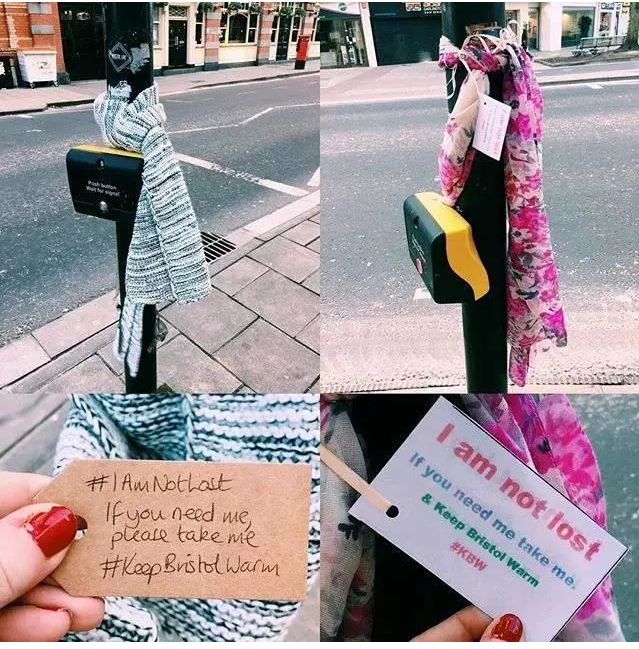 Push button
Wait for signal
#IAmNotLost
If you need me,
please take me
#KeepBristolWarm
I am not lost
If you need me take me,
& Keep Bristol Warm
#KBW